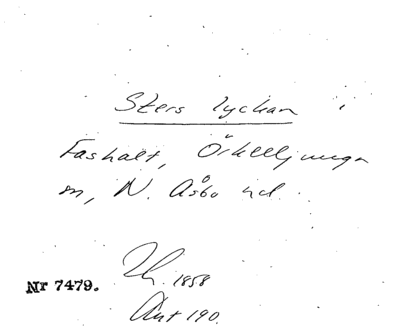 Sters lyckan
Fashalt, Örkelljunga
sn, N. Åsbo hd.
Th. 1858
Nr 7479.
Ant 190.